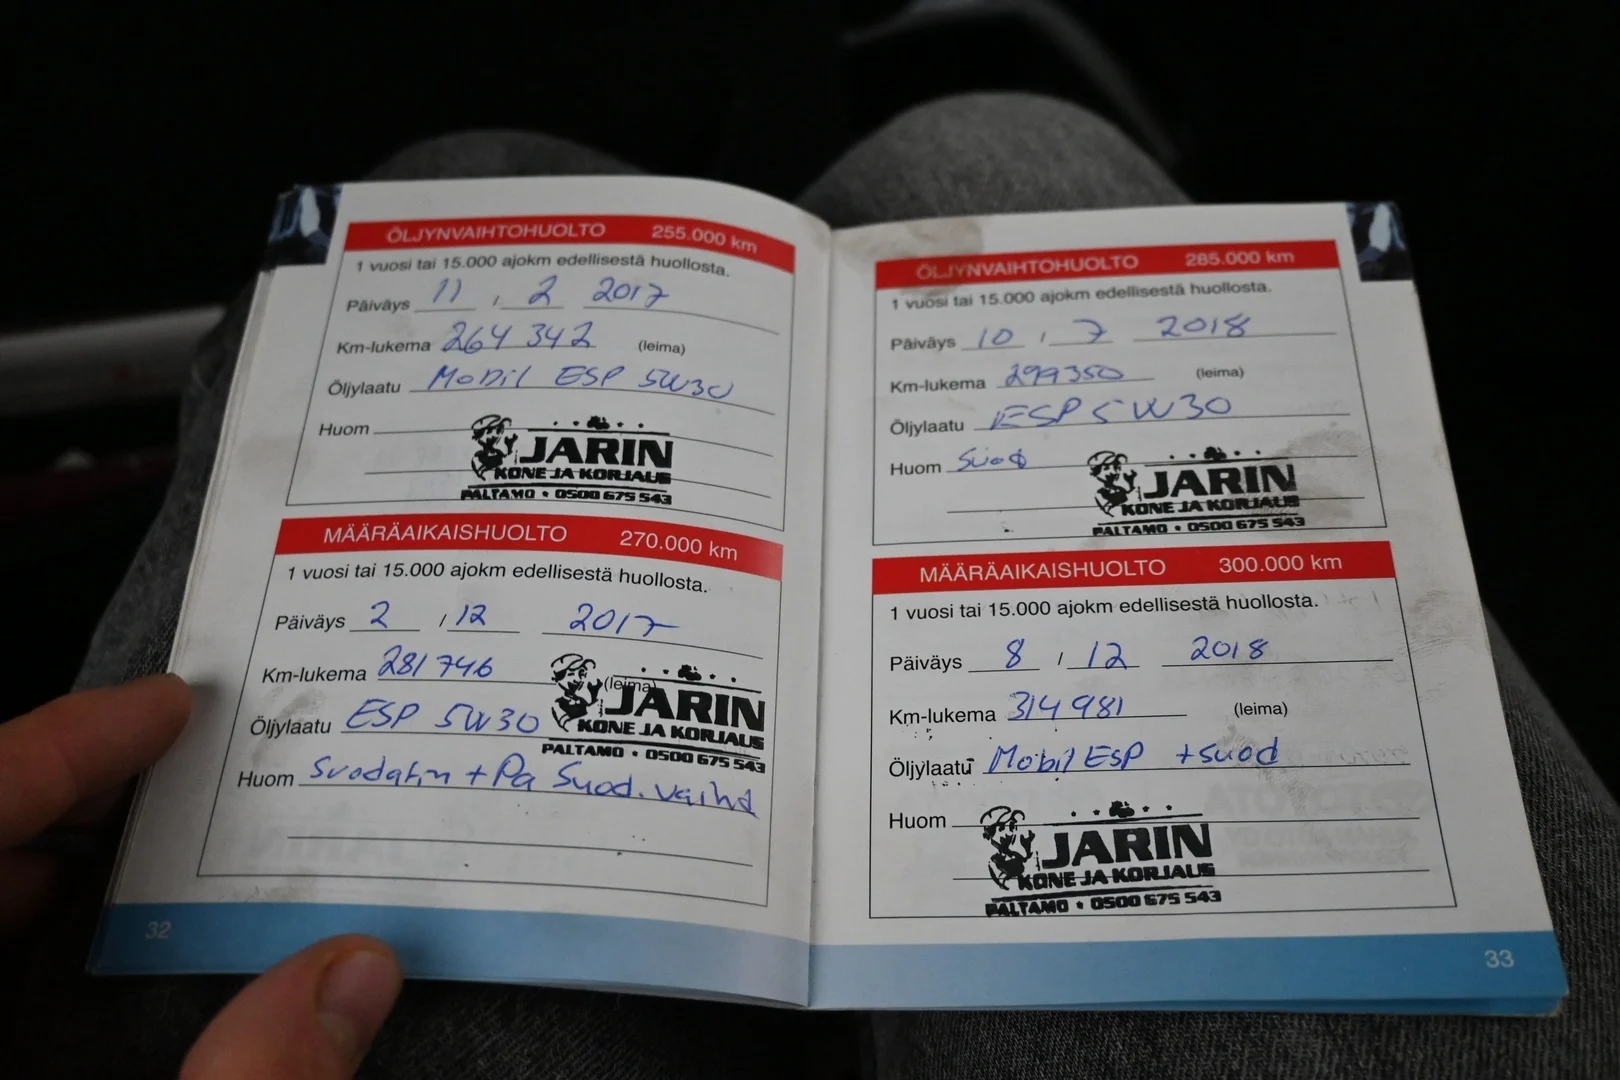 ÖLJYNVAIHTOHUOLTO 255.000 km
1 vuosi tai 15.000 ajokm edellisestä huollosta.
Päiväys 11 / 2 2017
Km-lukema 264 342 (leima)
Öljylaatu Mobil ESP 5W30
Huom
JARIN
KONE JA KORJAUS
PALTAMO • 0500 675 543
MÄÄRÄAIKAISHUOLTO 270.000 km
1 vuosi tai 15.000 ajokm edellisestä huollosta.
Päiväys 2 / 12 2017
Km-lukema 281 746 (leima)
JARIN
Öljylaatu ESP 5W30
KONE JA KORJAUS
PALTAMO • 0500 675 543
Huom Suodatin + Pa Suod. vaihd
32
ÖLJYNVAIHTOHUOLTO 285.000 km
1 vuosi tai 15.000 ajokm edellisestä huollosta.
Päiväys 10 / 7 2018
Km-lukema 299350 (leima)
Öljylaatu ESP 5W30
Huom Suod
JARIN
KONE JA KORJAUS
PALTAMO • 0500 675 543
MÄÄRÄAIKAISHUOLTO 300.000 km
1 vuosi tai 15.000 ajokm edellisestä huollosta.
Päiväys 8 / 12 2018
Km-lukema 314 981 (leima)
Öljylaatu Mobil ESP + suod
Huom
JARIN
KONE JA KORJAUS
PALTAMO • 0500 675 543
33